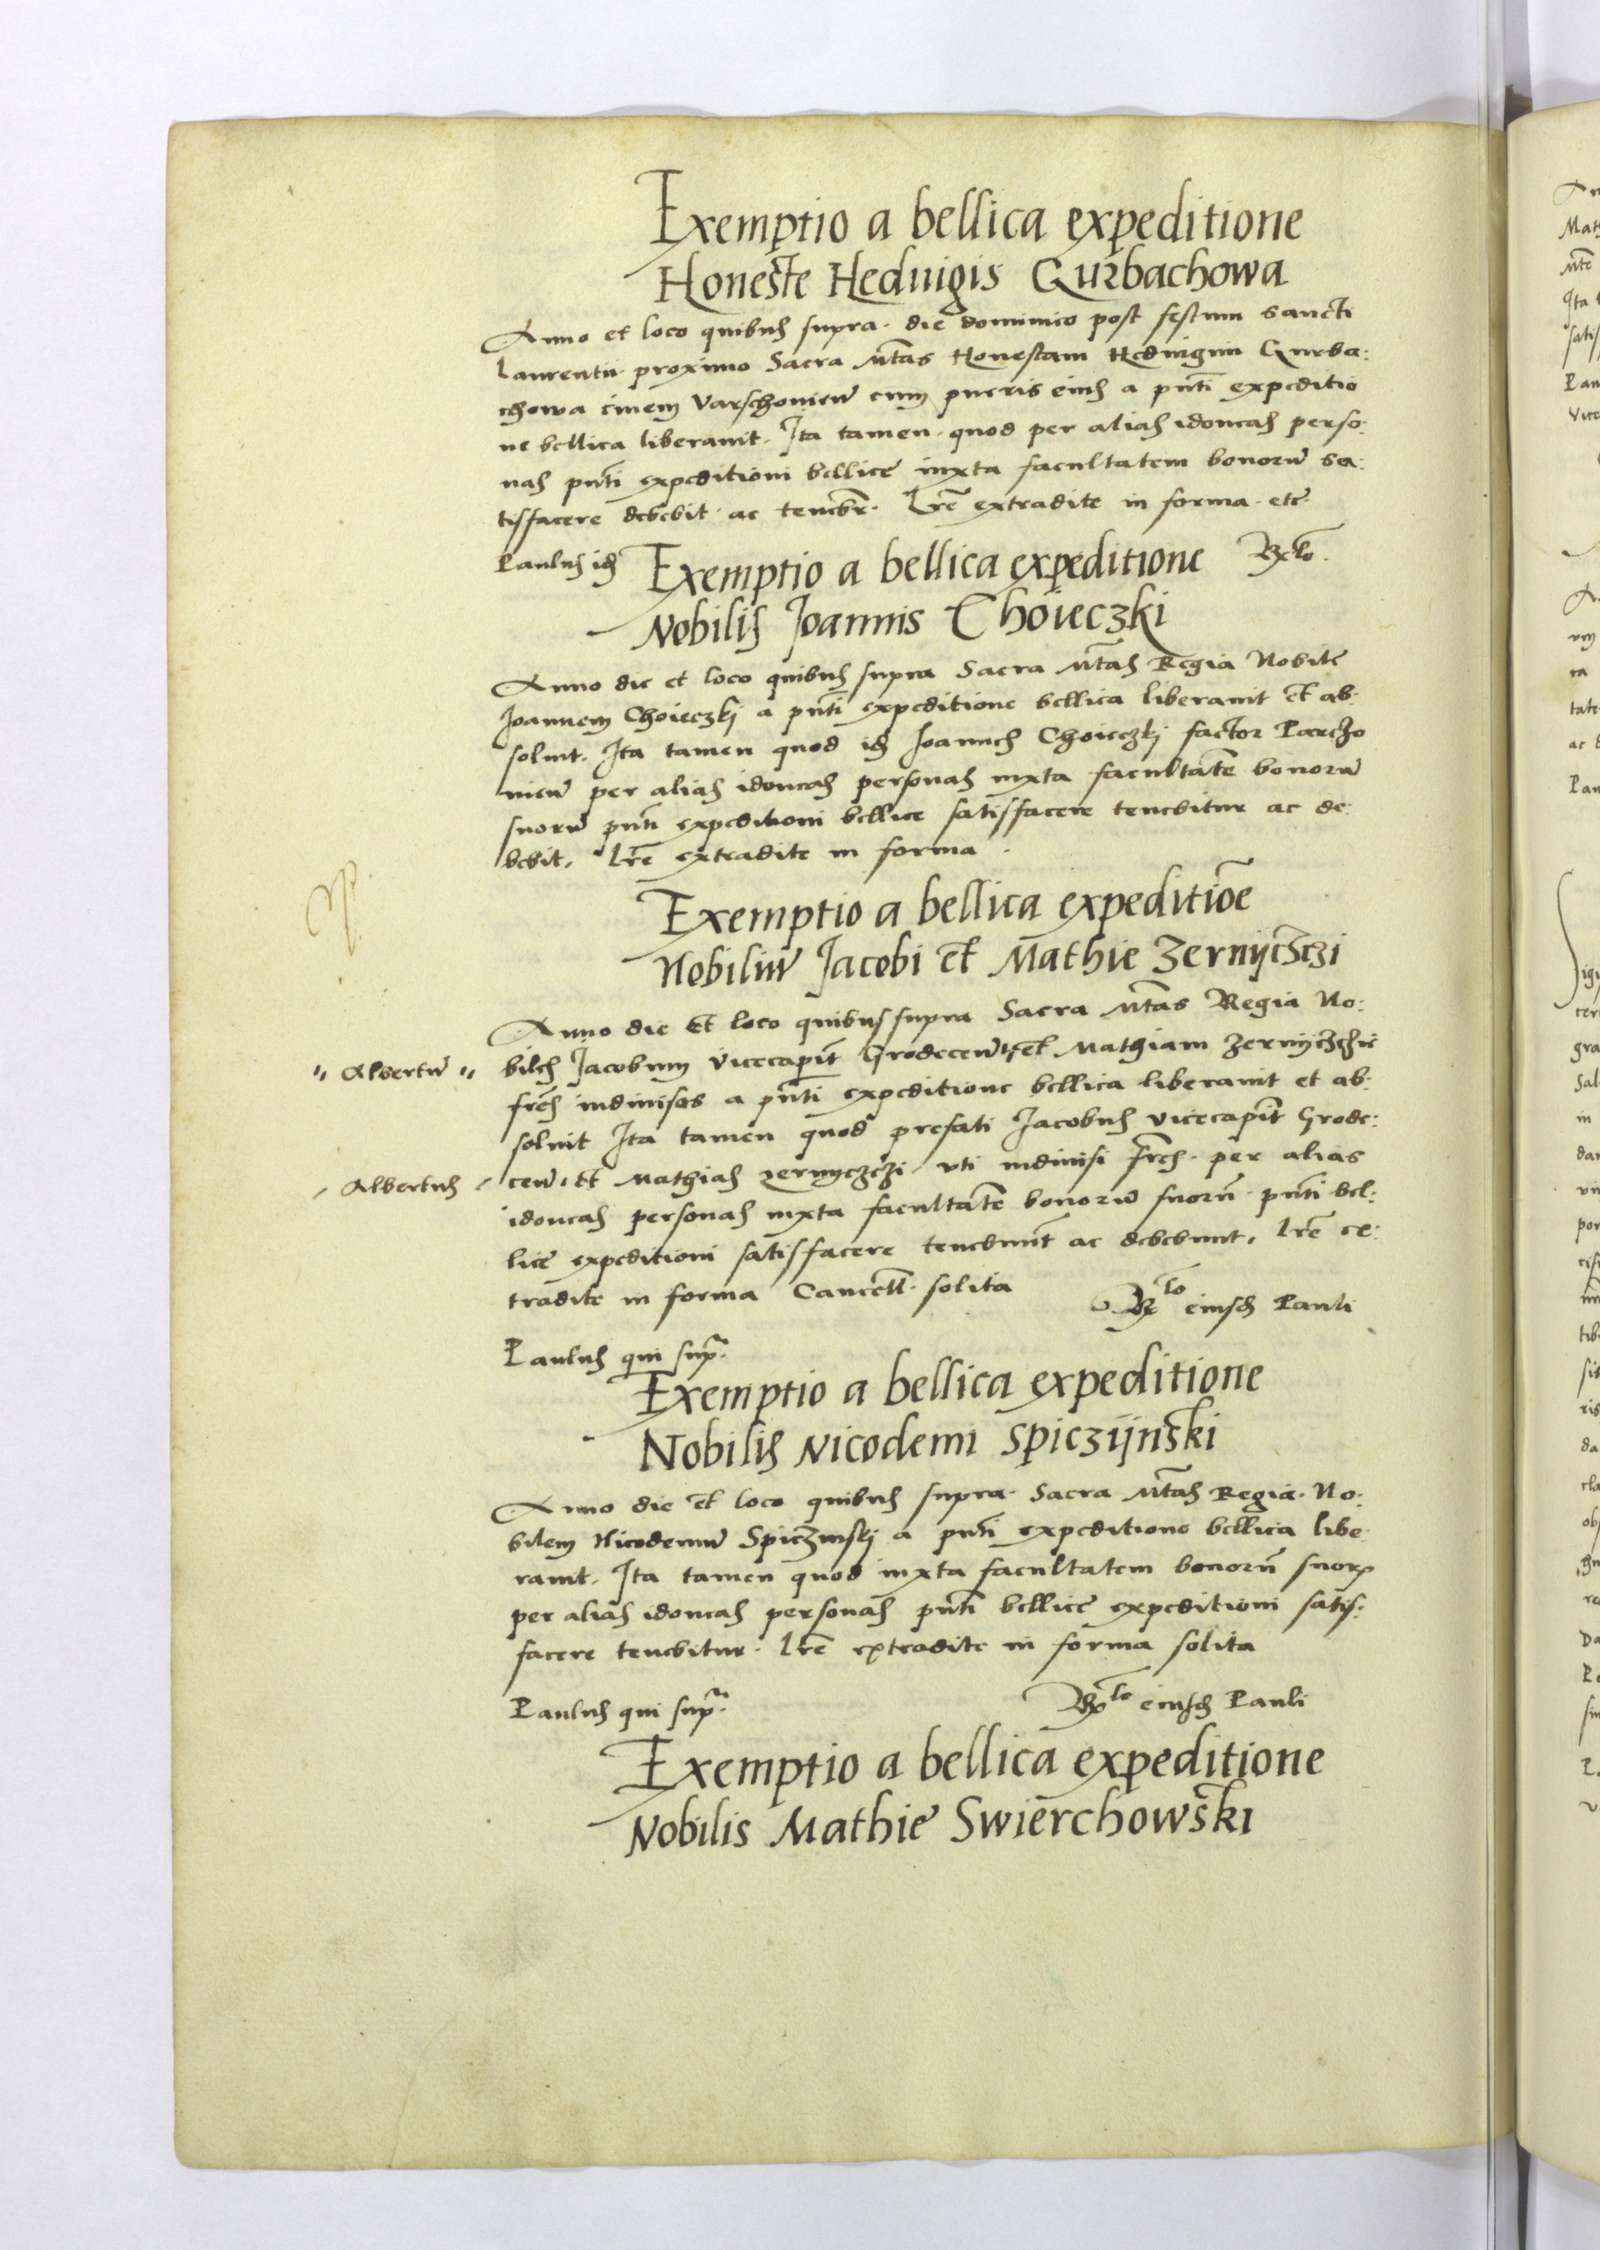 Exemptio a bellica expeditione
Honeste Heduigis Gurbachowa
Anno et loco quibus supra die dominico post festum sancti
Laurentii proximo Sacra Mtas Honestam Heduigim Gurba:
chowa ciuem Varschouieñ cum pueris eius a pñti expeditio
ne bellica liberauit. Ita tamen quod per alias idoneas perso:
nas pñti expeditioni bellice iuxta facultatem bonorũ sa:
tisfacere debebit ac tenebr. Lre extradite in forma etc
Paulus ids
Rlo.
Exemptio a bellica expeditione
Nobilis Joannis Choieczki
Anno die et loco quibus supra Sacra Mtas Regia Nobile
Joannem Choieczkj a pñti expeditione bellica liberauit et ab
soluit. Ita tamen quod ids Joannes Choieczkj factor Parczo
uieñ per alias idoneas personas iuxta facultate bonorũ
suorũ pñti expeditioni bellice satisfacere tenebitur ac de:
bebit. Lre extradite in forma.
Exemptio a bellica expeditioe
Nobiliũ Jacobi et Mathie Zernijczczi
Anno die et loco quibus supra Sacra Mtas Regia No:
"Albertũ" biles Jacobum Vicecapit Grodeceñ et Mathiam Zernijczczic
frẽs indiuisos a pñti expeditione bellica liberauit et ab:
soluit Ita tamen quod prefati Jacobus vicecapit Grode:
Albertus ceñ et Mathias Zernyczczi vti indiuisi frẽs per alias
idoneas personas iuxta facultate bonorũ suorũ pñti bel:
lice expeditioni satisfacere tenebunt ac debebunt. Lre ex:
tradite in forma Cancell. solita
Rlo eiusds Pauli
Paulus qui supr.
Exemptio a bellica expeditione
Nobilis Nicodemi Spiczijnski
Anno die et loco quibus supra Sacra Mtas Regia No:
bilem Nicodemũ Spiczinskj a pñti expeditione bellica libe
rauit. Ita tamen quod iuxta facultatem bonorũ suorꝝ
per alias idoneas personas pñti bellice expeditioni satis:
facere tenebitur. Lre extradite in forma solita
Paulus qui supr. Rlo eiusds Pauli
Exemptio a bellica expeditione
Nobilis Mathie Swierchowski